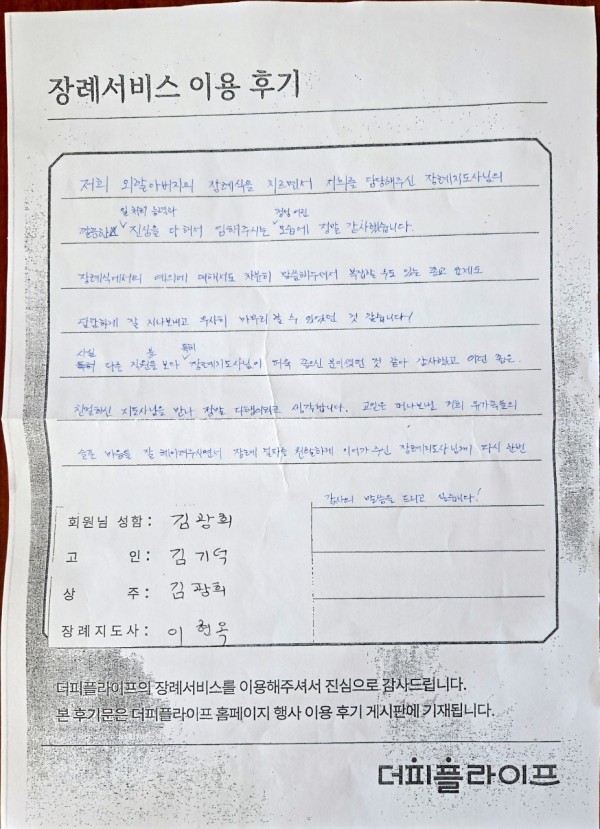 장례서비스 이용 후기
저희 외할아버지의 장례식을 치르면서 저희를 담당해주신 장례지도사님의
일 처리 능력과 정말 어린
깔끔한 진심을 다 해서 임해주시는 모습에 정말 감사했습니다.
장례식에서의 예의에 대해서도 차분히 말씀해주셔서 복잡할 수도 있는 종교 문제도
원만하게 잘 지나보내고 무사히 마무리 할 수 있었던 것 같습니다!
사실 분 특히
다른 직원들 보다 장례지도사님이 더욱 좋으신 분이셨던 것 같아 감사하고 이런 좋은
친절하신 지도사님을 만나 정말 다행이라고 생각합니다. 고인을 떠나보낸 저희 유가족들의
슬픈 마음을 잘 헤아려주시면서 장례 절차를 원활하게 이어가 주신 장례지도사님께 다시 한번
감사의 말씀을 드리고 싶습니다!
회원님 성함 : 김광희
고 인 : 김기덕
상 주 : 김광희
장례지도사 : 이현옥
더피플라이프의 장례서비스를 이용해주셔서 진심으로 감사드립니다.
본 후기문은 더피플라이프 홈페이지 행사 이용 후기 게시판에 기재됩니다.
더피플라이프